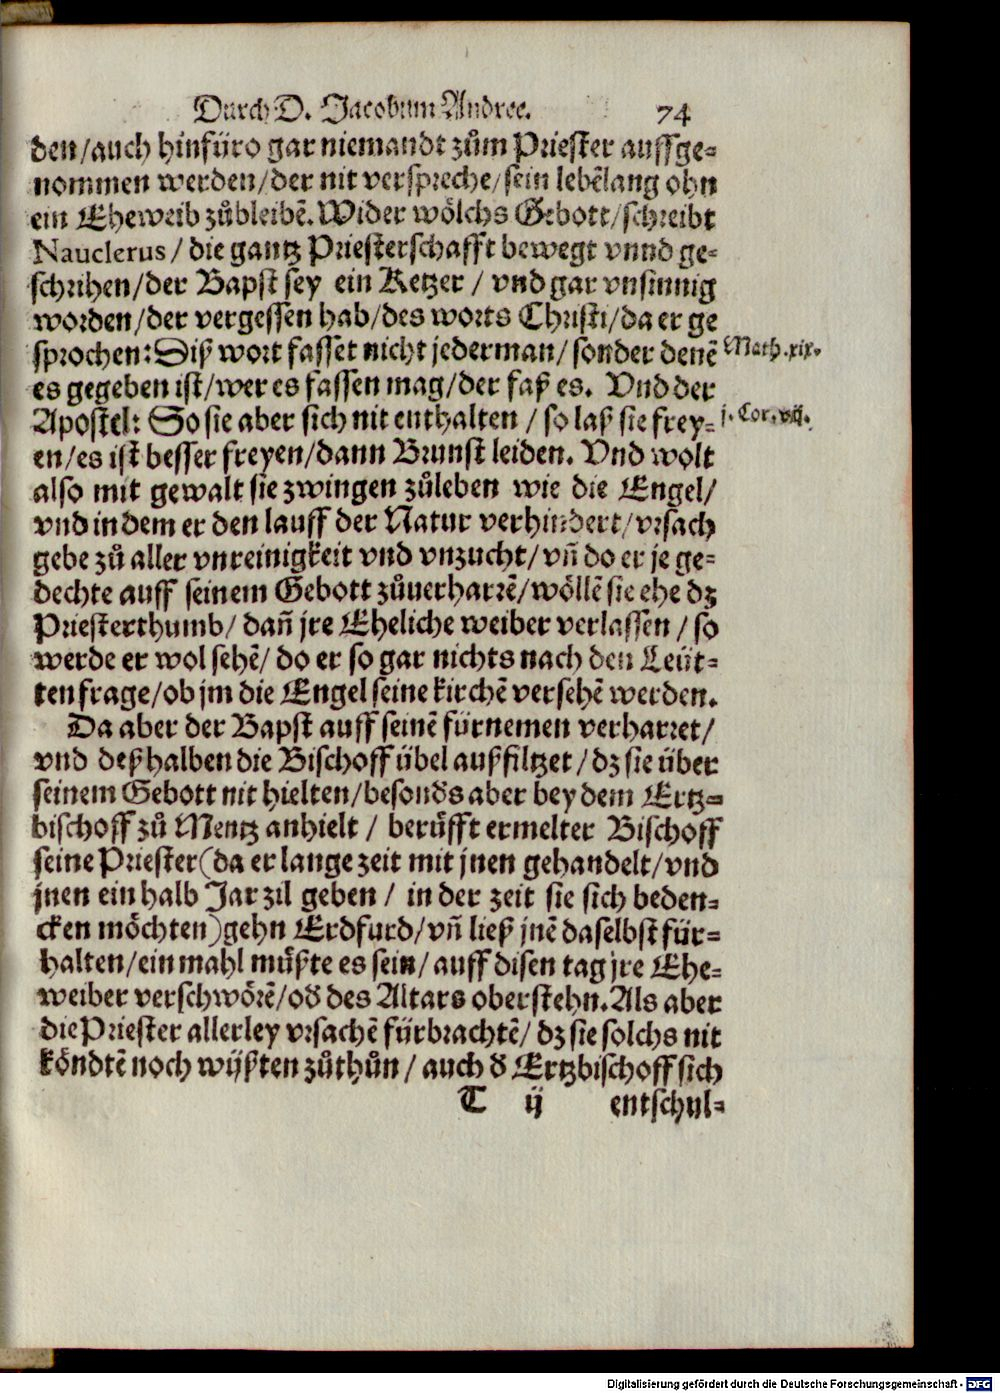 Durch D. Jacobum Andree. 74
den/auch hinfüro gar niemandt zům Priester auffge-
nommen werden/der nit verspreche/sein lebẽlang ohn
ein Eheweib zůbleibẽ. Wider wölchs Gebott/schreibt
Nauclerus/die gantz Priesterschafft bewegt vnnd ge-
schrihen/der Bapst sey ein Ketzer/vnd gar vnsinnig
worden/der vergessen hab/des worts Christi/da er ge
sprochen: Diß wort fasset nicht jederman/sonder denẽ
Math. xix.
es gegeben ist/wer es fassen mag/der faß es. Vnd der
Apostel: So sie aber sich nit enthalten/so laß sie frey-
j. Cor. vij.
en/es ist besser freyen/dann Brunst leiden. Vnd wolt
also mit gewalt sie zwingen zůleben wie die Engel/
vnd in dem er den lauff der Natur verhindert/vrsach
gebe zů aller vnreinigkeit vnd vnzucht/vñ do er je ge-
dechte auff seinem Gebott zůuerharrẽ/wöllẽ sie ehe dz
Priesterthumb/dañ jre Eheliche weiber verlassen/so
werde er wol sehẽ/do er so gar nichts nach den Leüt-
ten frage/ob jm die Engel seine kirchẽ versehẽ werden.
Da aber der Bapst auff seinẽ fürnemen verharret/
vnd deßhalben die Bischoff übel außfiltzet/dz sie über
seinem Gebott nit hielten/besonds aber bey dem Ertz-
bischoff zů Mentz anhielt/berüfft ermelter Bischoff
seine Priester(da er lange zeit mit jnen gehandelt/vnd
jnen ein halb Jar zil geben/in der zeit sie sich beden-
cken möchten)gehn Erdfurd/vñ ließ jnẽ daselbst für-
halten/ein mahl müßte es sein/auff disen tag jre Ehe-
weiber verschwörẽ/od des Altars oberstehn. Als aber
die Priester allerley vrsachẽ fürbrachtẽ/dz sie solchs nit
köndtẽ noch wüßten zůthůn/auch d Ertzbischoff sich
T ij entschul-
Digitalisierung gefördert durch die Deutsche Forschungsgemeinschaft - DFG